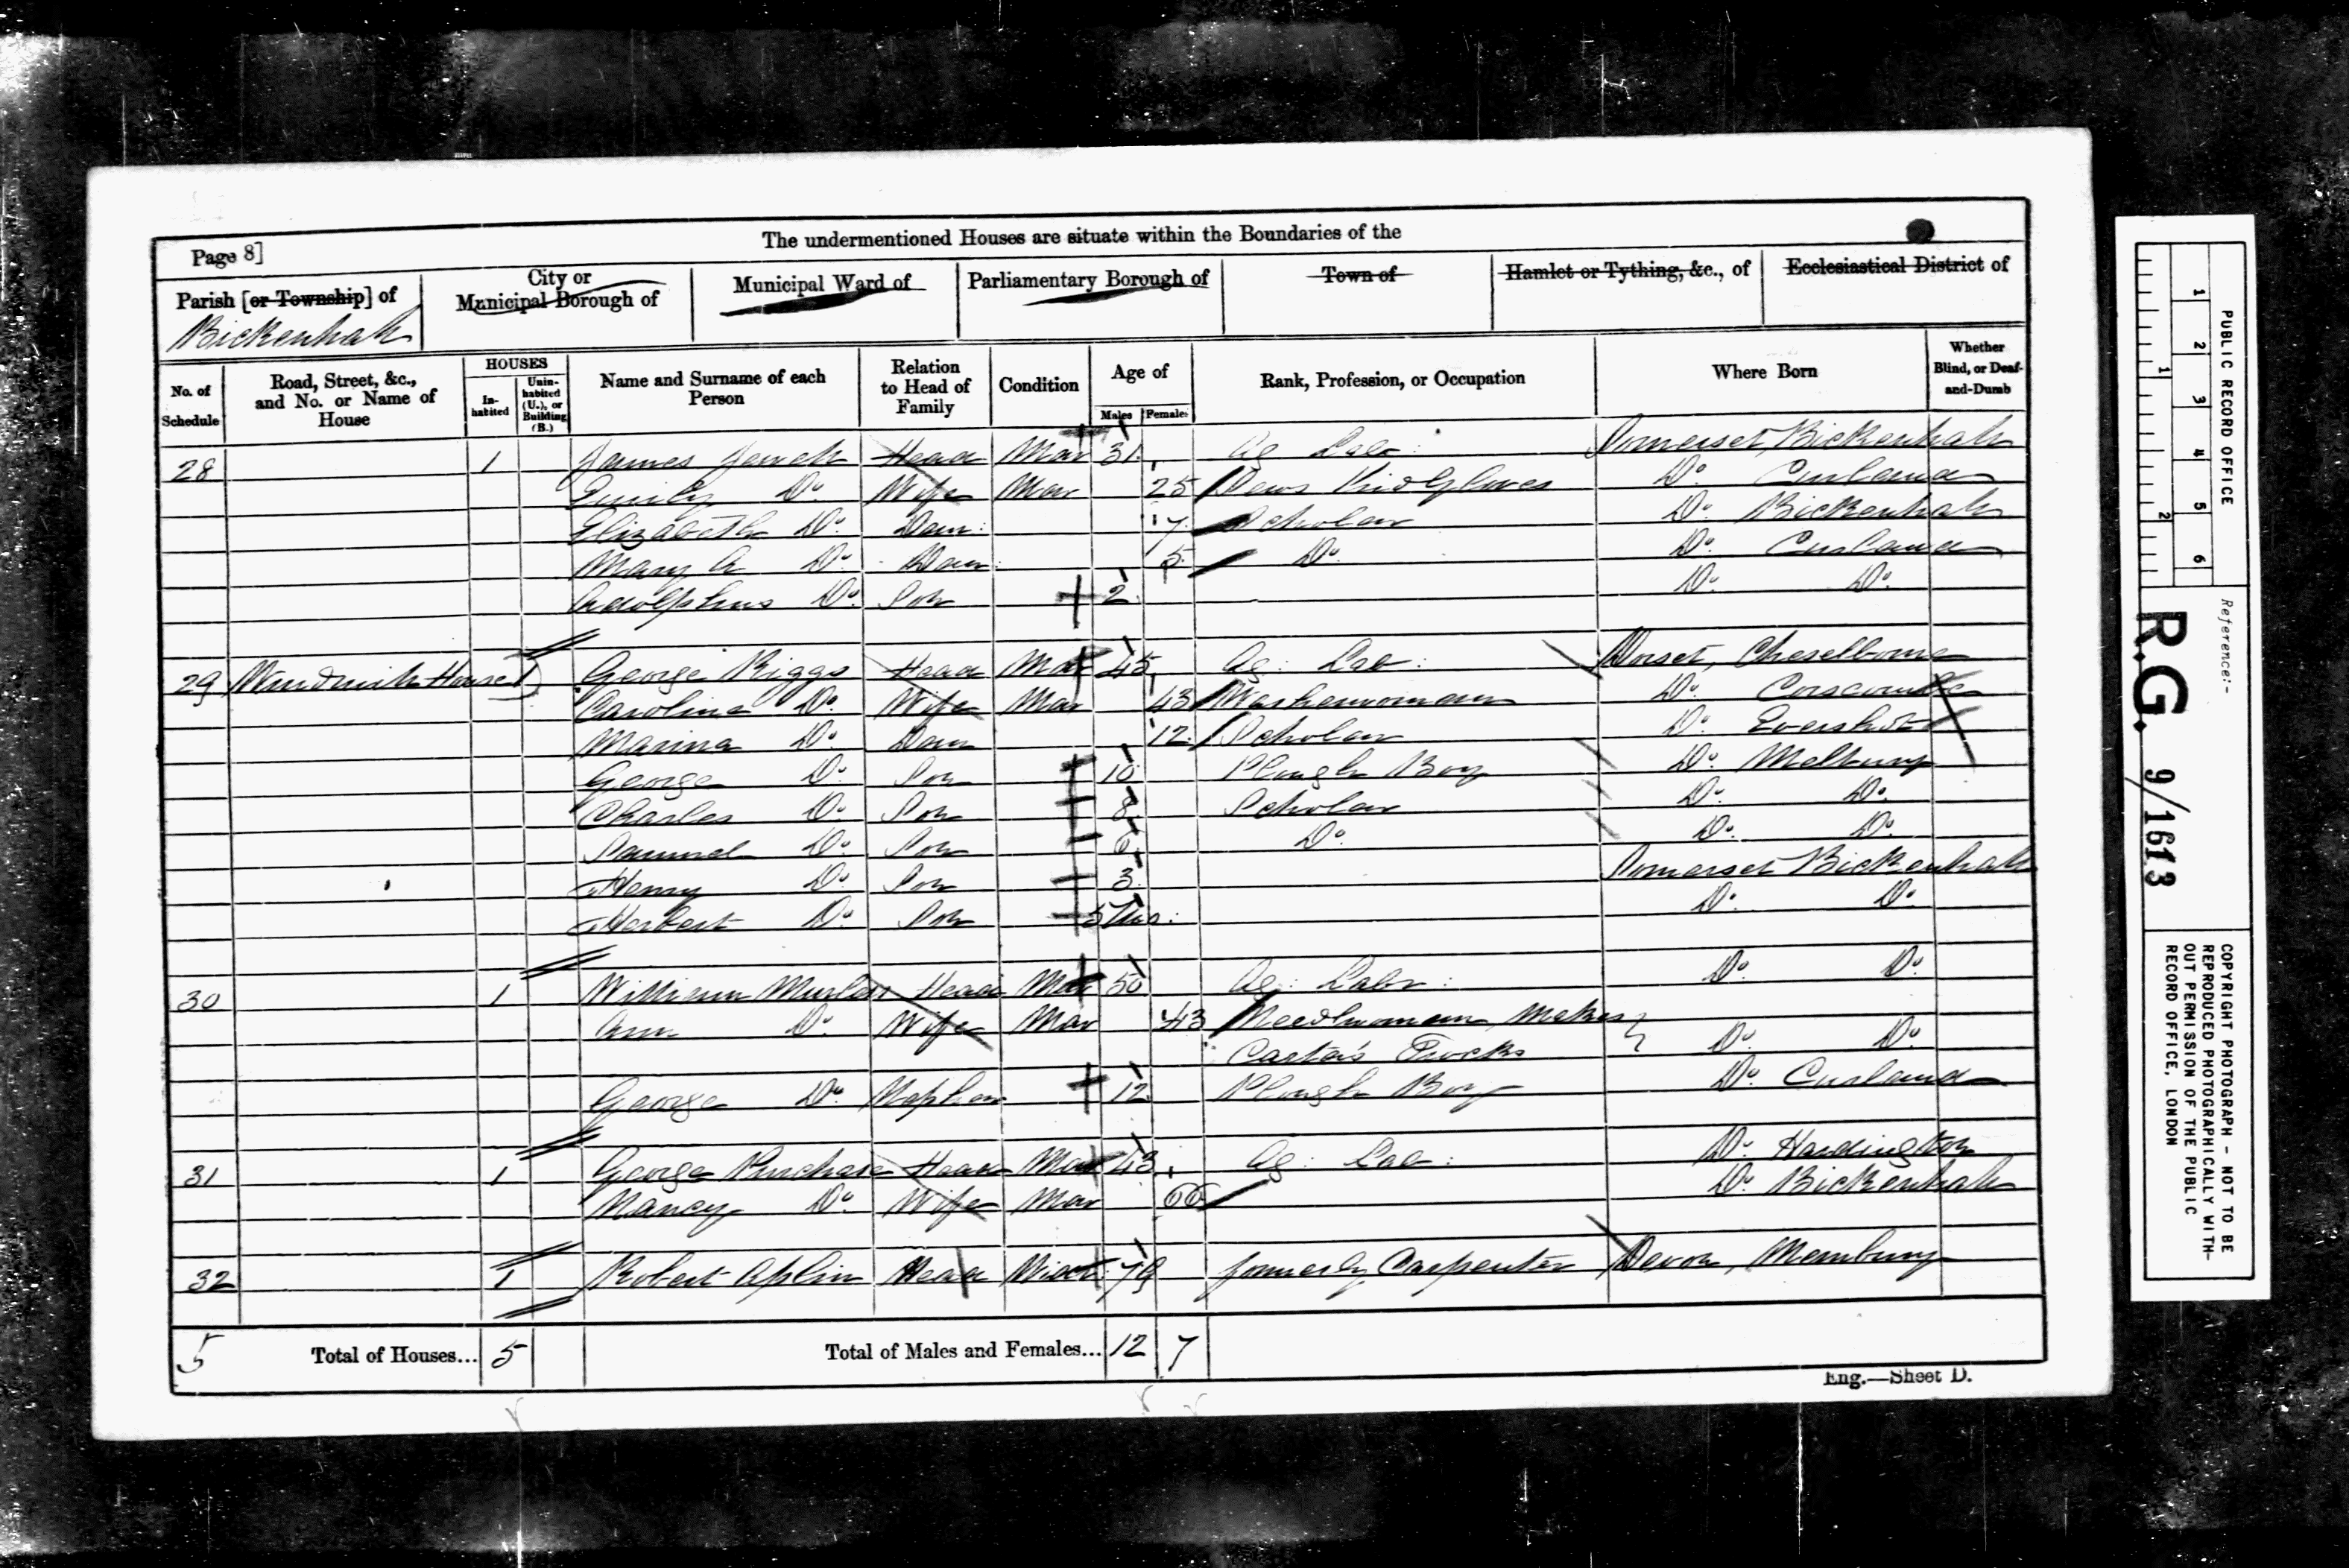 The undermentioned Houses are situate within the Boundaries of the
Page 8]
Parish [or Township] of
Bickenhall
City or
Municipal Borough of
Municipal Ward of
Parliamentary Borough of
Town of
Hamlet or Tything, &c., of
Ecclesiastical District of
No. of
Schedule
Road, Street, &c.,
and No. or Name of
House
HOUSES
In-
habited
Unin-
habited
(U.), or
Building
(B.)
Name and Surname of each
Person
Relation
to Head of
Family
Condition
Age of
Males
Females
Rank, Profession, or Occupation
Where Born
Whether
Blind, or Deaf-
and-Dumb
28 1 James Head Mar 31 Ag Lab: Somerset, Bickenhall
Emily Do. Wife Mar 25 Sews Kid Gloves Do. Curland
Elizabeth Do. Daur: 7 Scholar Do. Bickenhall
Mary A Do. Daur: 5 Do. Do. Curland
Adolphus Do. Son 2 Do. Do.
29 House 1 George Riggs Head Mar 45 Ag: Lab: Dorset, Cheselborne
Caroline Do. Wife Mar 43 Washerwoman Do. Corscombe
Marina Do. Daur 12 Scholar Do. Evershot
George Do. Son 10 Plough Boy Do. Melbury
Charles Do. Son 8 Scholar Do. Do.
Samuel Do. Son 6 Do. Do. Do.
Henry Do. Son 3 Somerset Bickenhall
Herbert Do. Son 5 Mo: Do. Do.
30 1 William Head Mar 50 Ag: Labr: Do. Do.
Ann Do. Wife Mar 43 Needlwoman, Makes
Frocks Do. Do.
George Do. Nephew 12 Plough Boy Do. Curland
31 1 George Purchase Head Mar 43 Ag: Lab: Do. Hardington
Nancy Do. Wife Mar 66 Do. Bickenhall
32 1 Robert Aplin Head Widr 79 formerly Carpenter Devon, Membury
5 Total of Houses... 5 Total of Males and Females... 12 7
Eng.—Sheet D.
PUBLIC RECORD OFFICE
1 2 3 4 5 6
1 2
Reference:-
R.G. 9/1613
COPYRIGHT PHOTOGRAPH - NOT TO BE
REPRODUCED PHOTOGRAPHICALLY WITH-
OUT PERMISSION OF THE PUBLIC
RECORD OFFICE, LONDON